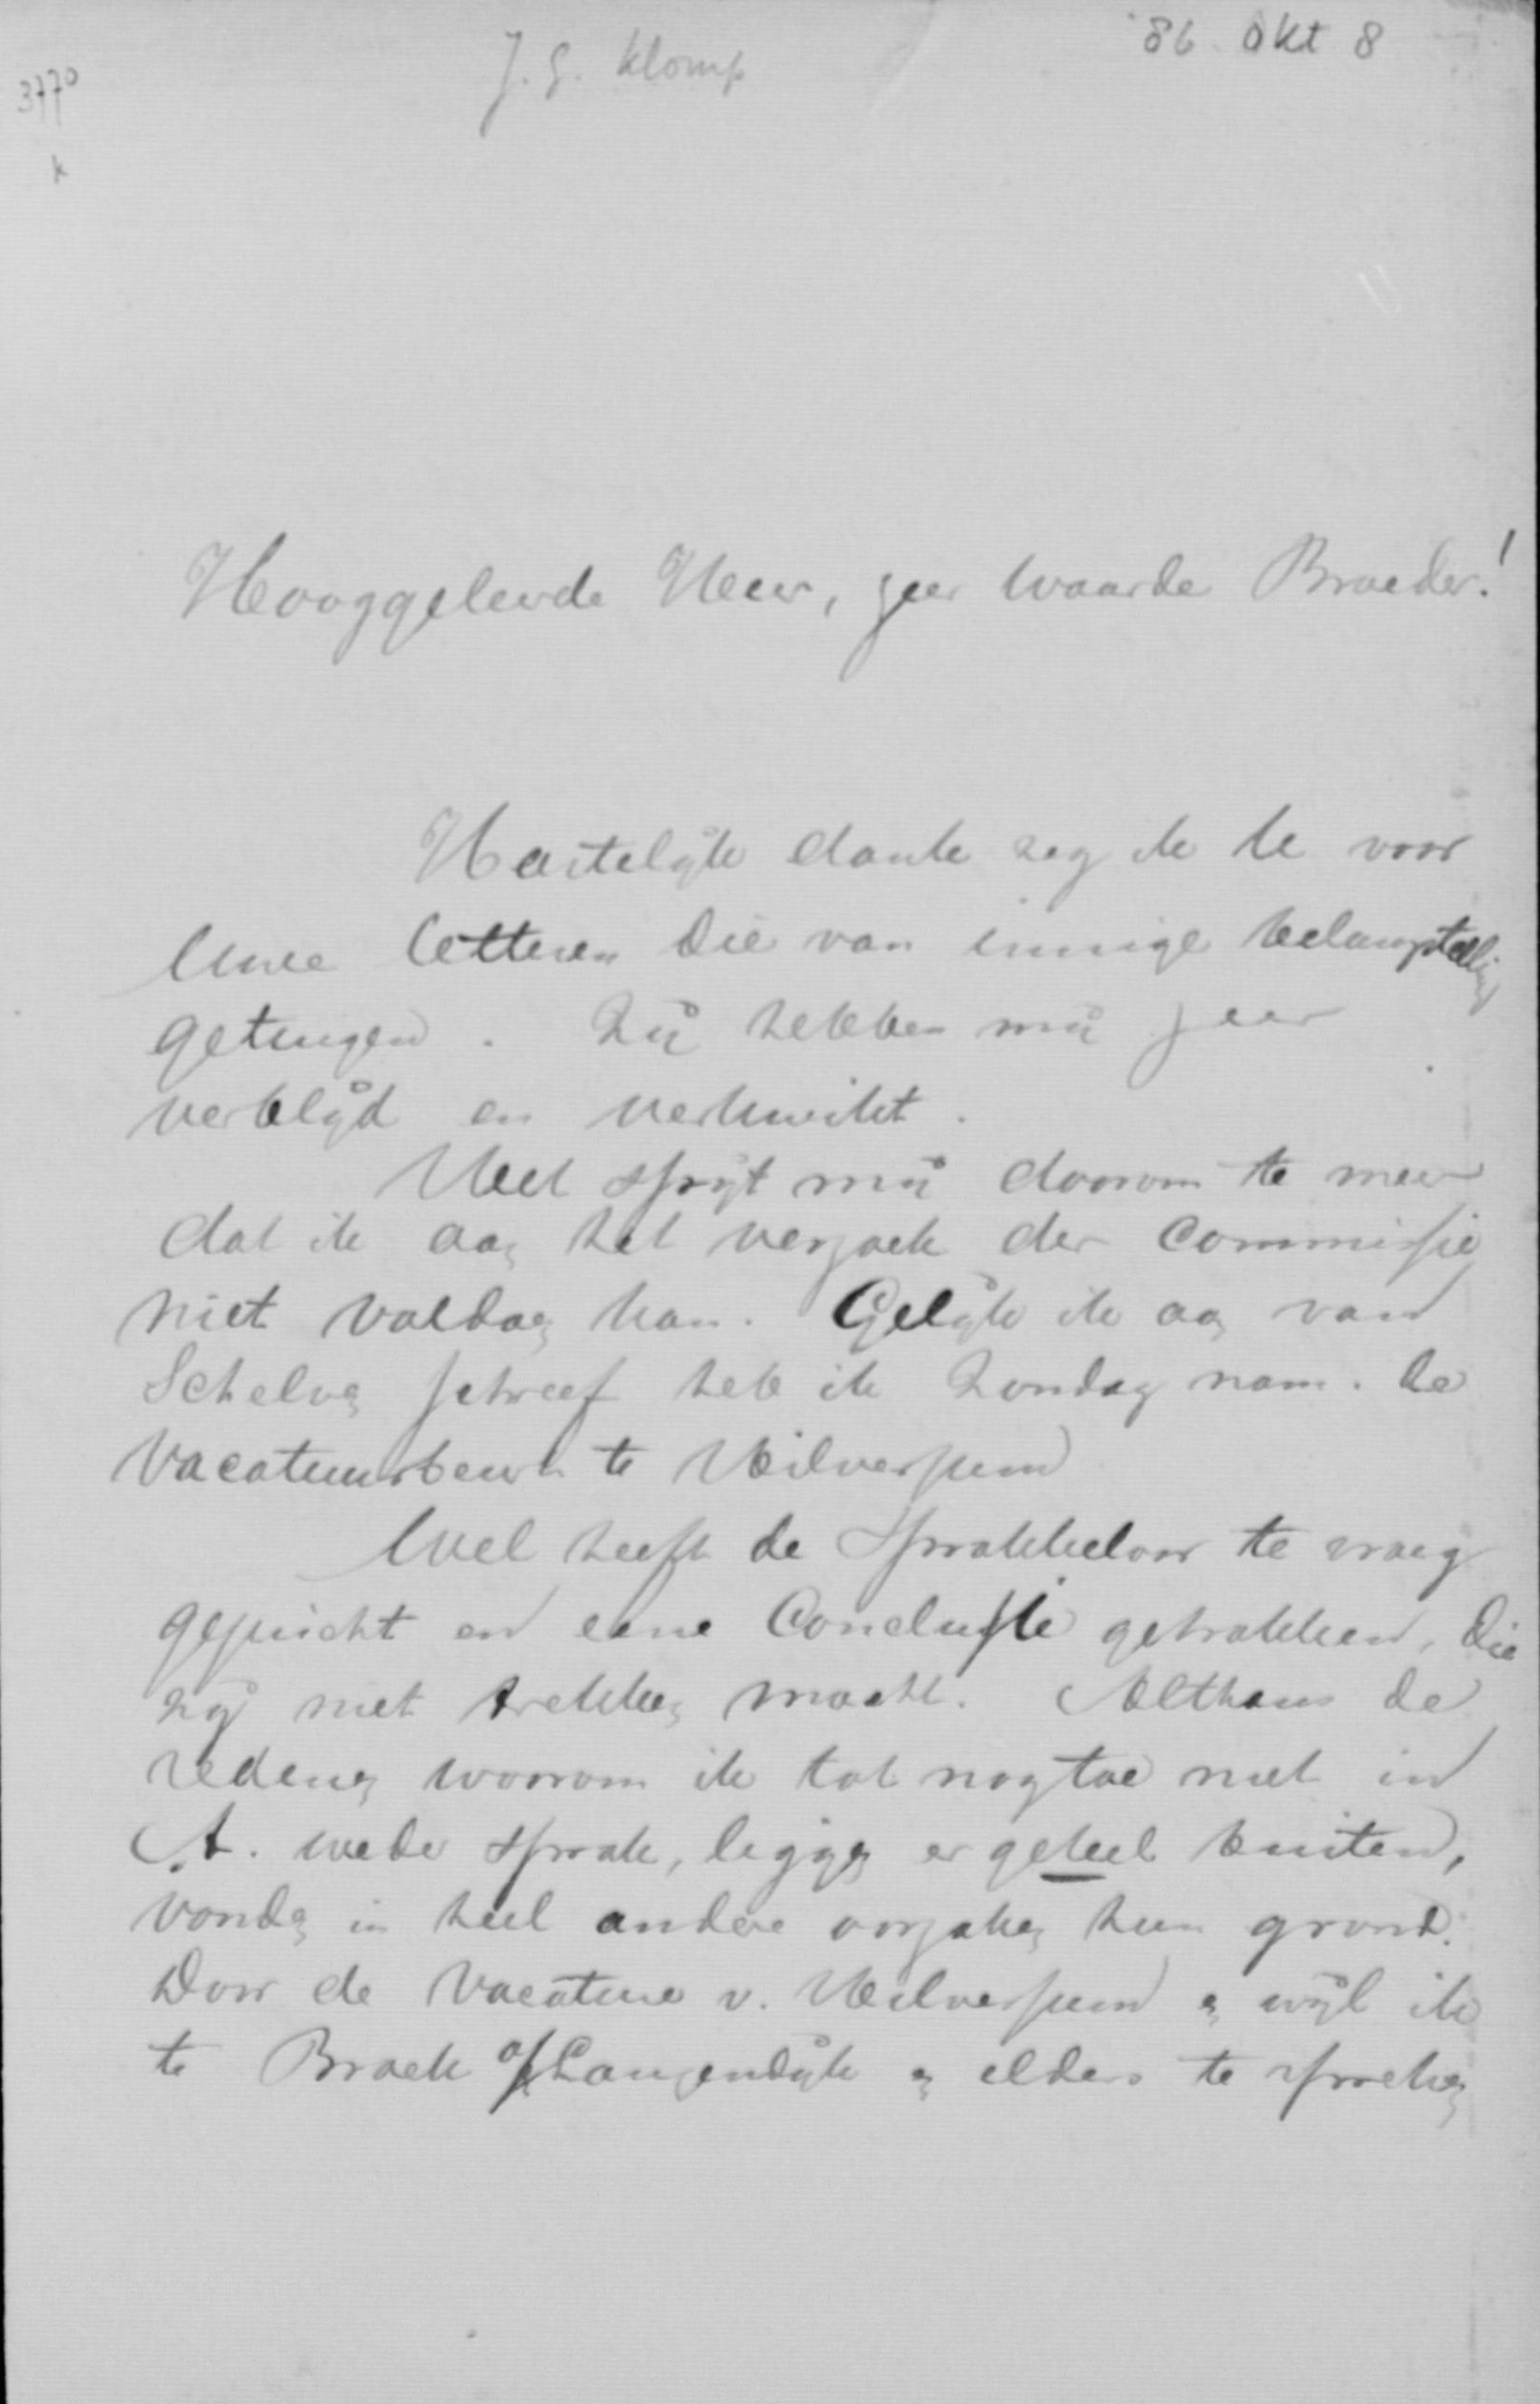 '86 Okt 8
J. G. Klomp
3770
k
Hooggeleerde Heer, zeer waarde Broeder!
Hartelijk dank zeg ik U voor
Uwe letteren die van innige belangstelling
getuigen. Zij hebben mij zeer
verblijd en verkwikt.
Veel spijt mij daarom te meer
dat ik aan het verzoek der Commissie
niet voldoen kan. Gelijk ik aan van
Schelven schreef heb ik Zondag nam. de
vacatuurbeurt te Hilversum
Wel heeft de spraakleloor te vroeg
gejuicht en eene Conclusie getrokken, die
zij niet trekken mocht. Althans de
redenen waarom ik tot nog toe niet in
A. weder sprak, liggen er geheel buiten,
vonden in heel andere oorzaken hun grond.
Door de vacature v. Hilversum en wijl ik
te Broek of Langendijk en elders te spreken